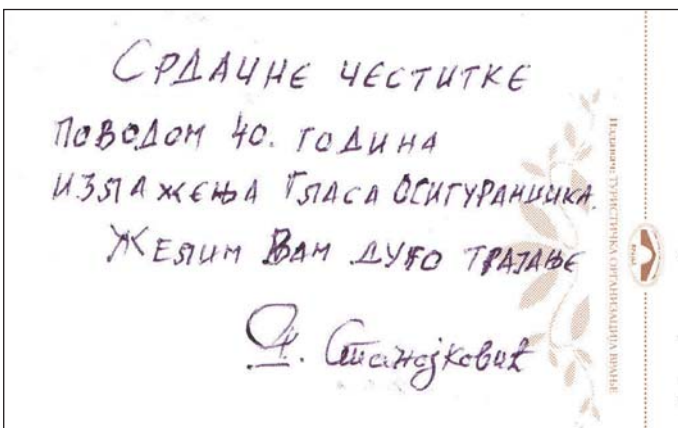 СРДАЧНЕ ЧЕСТИТКЕ
ПОВОДОМ 40. ГОДИНА
ИЗЛАЖЕЊА ГЛАСА ОСИГУРАНИКА.
ЖЕЛИМ ВАМ ДУГО ТРАЈАЊЕ
Станојковић
Издавач: ТУРИСТИЧКА ОРГАНИЗАЦИЈА ВРАЊЕ